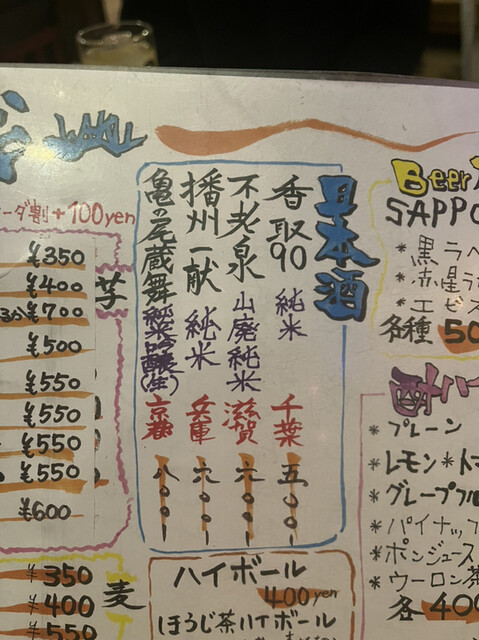 日本酒
香取90 純米 千葉 五〇〇ー
不老泉 山廃純米 滋賀 六〇〇ー
播州一献 純米 兵庫 六〇〇ー
亀の尾蔵舞 純米吟醸(生) 京都 八〇〇ー
ーダ割+100yen
¥350
¥400
¥700
¥500
¥550
¥550
¥550
¥550
¥600
芋
¥350
¥400
¥550
麦
ハイボール
400yen
ほうじ茶ハイボール
Beer
SAPPO
*黒ラベ
*赤星ラ
*エビス
各種 50
*プレーン
*レモン*トマ
*グレープフル
*パイナップ
*ポンジュース
*ウーロン茶
各400